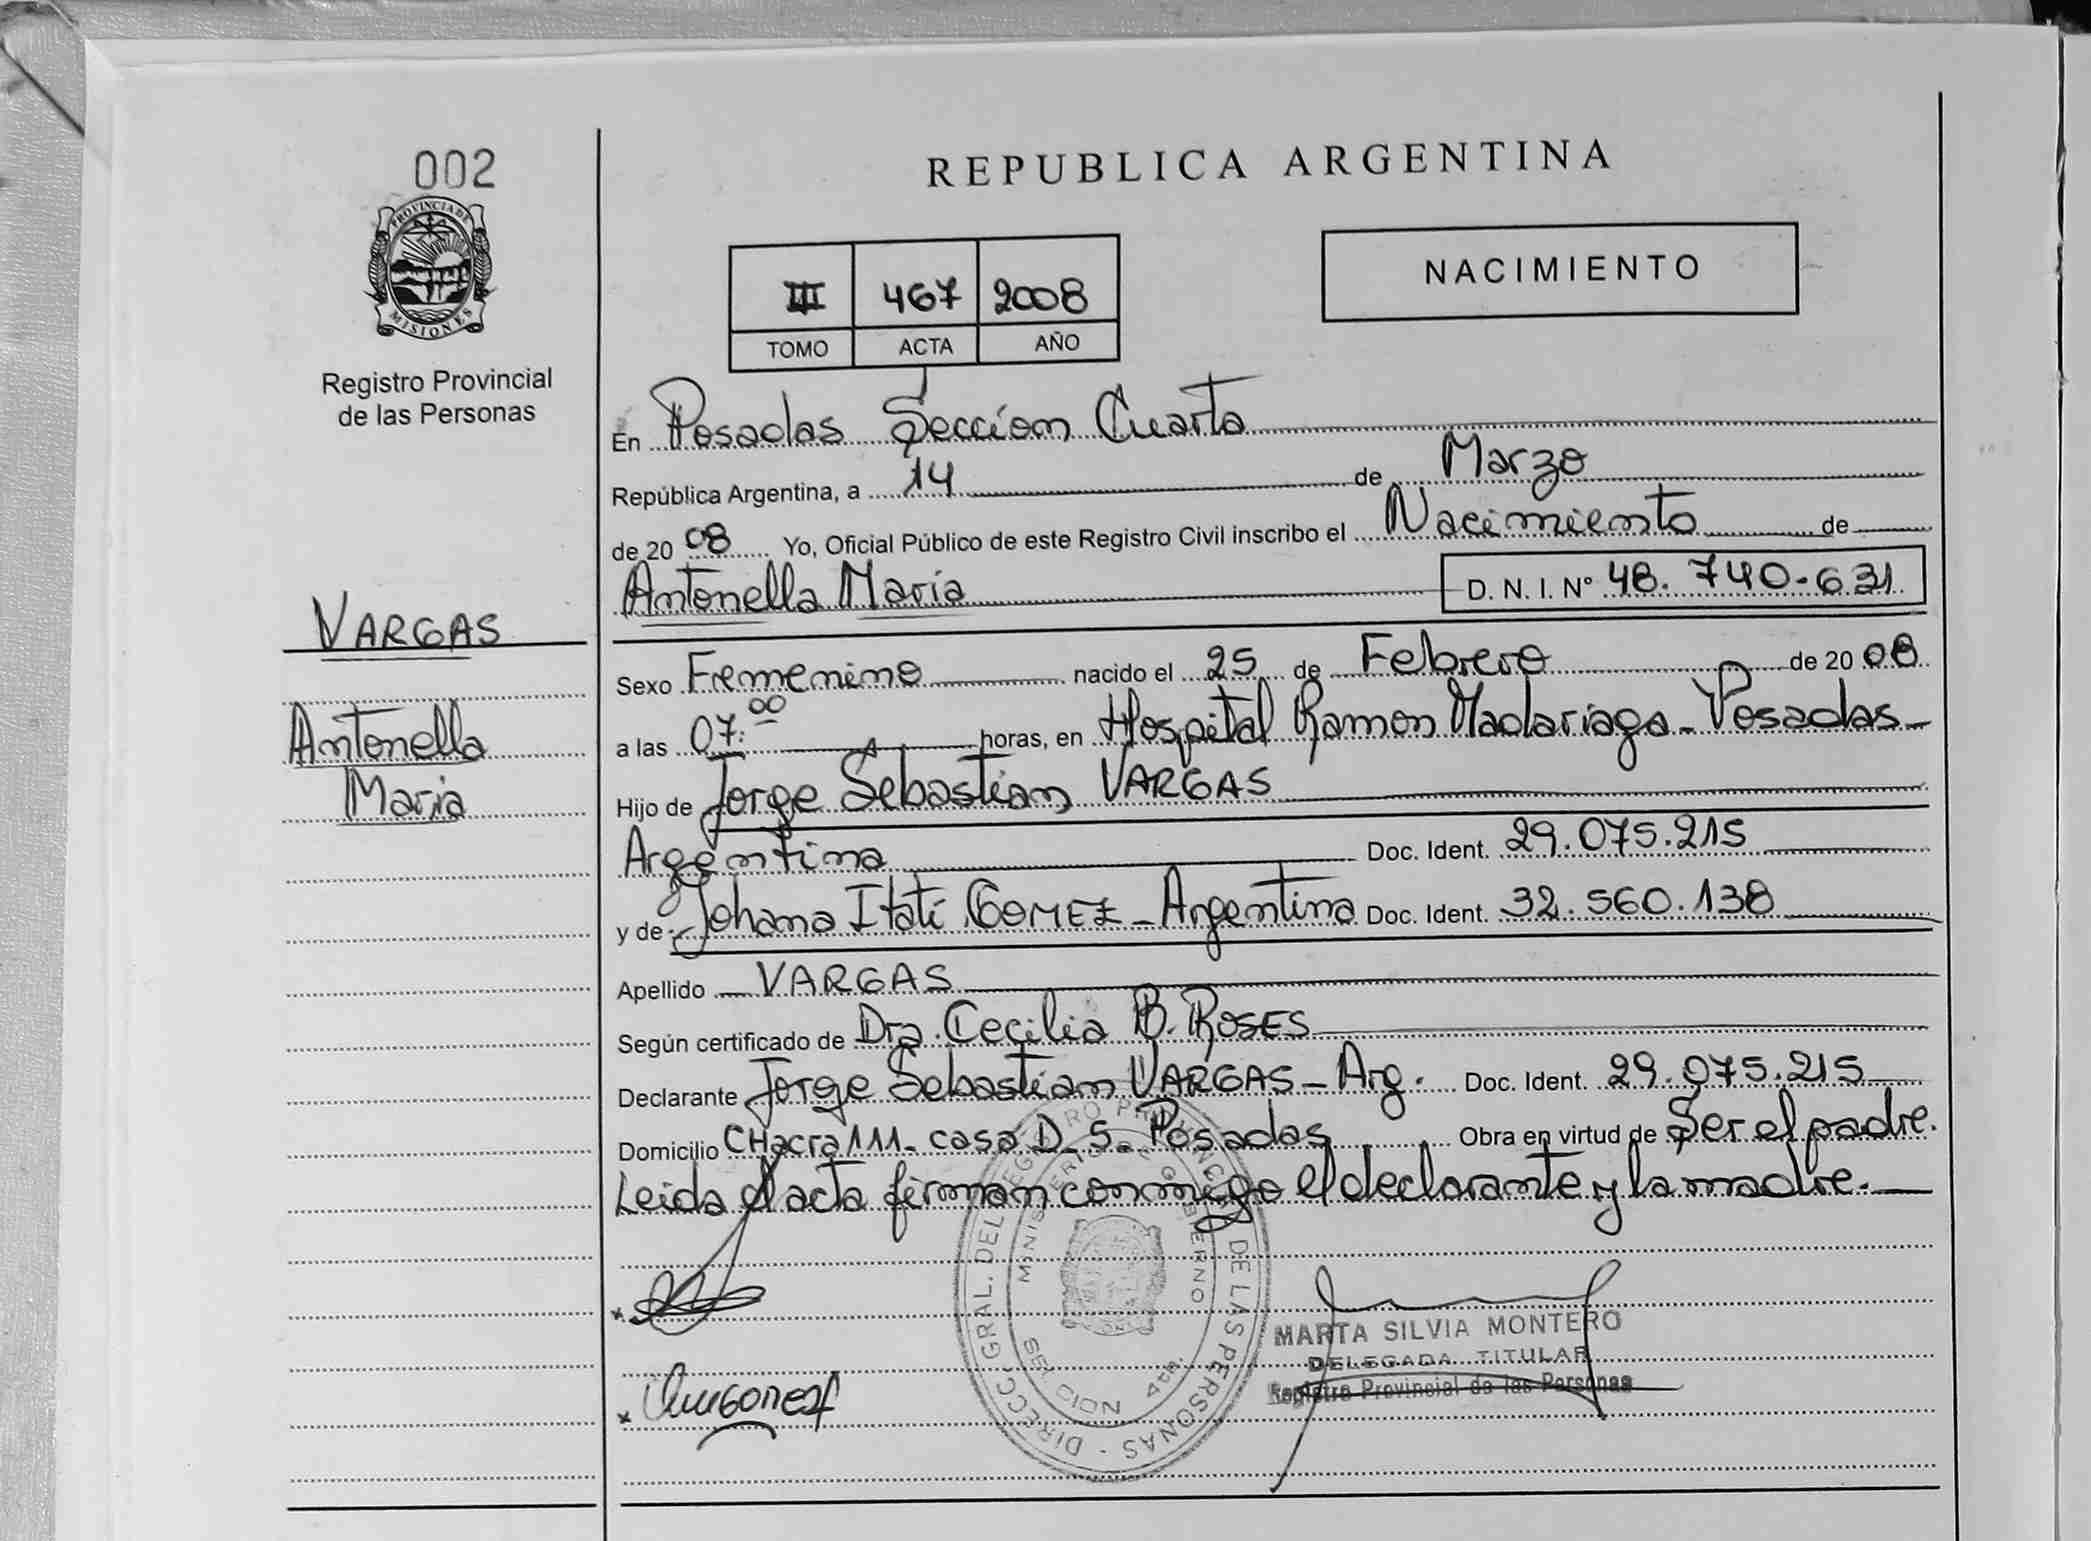 002
PROVINCIA DE
MISIONES
Registro Provincial
de las Personas
VARGAS
Antonella
Maria
REPUBLICA ARGENTINA
III 467 2008
TOMO ACTA AÑO
NACIMIENTO
En Posadas Sección Cuarta
República Argentina, a 14 de Marzo
de 20 08 Yo, Oficial Público de este Registro Civil inscribo el Nacimiento de
Antonella María D. N. I. Nº 48. 740.631
Sexo Femenino nacido el 25 de Febrero de 20 08
a las 07:00 horas, en Hospital Ramon Madariaga - Posadas -
Hijo de Jorge Sebastian VARGAS
Argentina Doc. Ident. 29.075.215
y de Johana Itatí GOMEZ - Argentina Doc. Ident. 32.560.138
Apellido VARGAS
Según certificado de Dra. Cecilia B. ROSES
Declarante Jorge Sebastian VARGAS - Arg. Doc. Ident. 29.075.215
Domicilio CHacra 111 - casa D_5_ Posadas Obra en virtud de Ser el padre.
Leida el acta firman conmigo el declarante y la madre.
DIRECC. GRAL. DEL REGISTRO PROVINCIAL DE LAS PERSONAS
MINISTERIO DE GOBIERNO
SECCION 4ta.
MARTA SILVIA MONTERO
DELEGADA TITULAR
Registro Provincial de las Personas